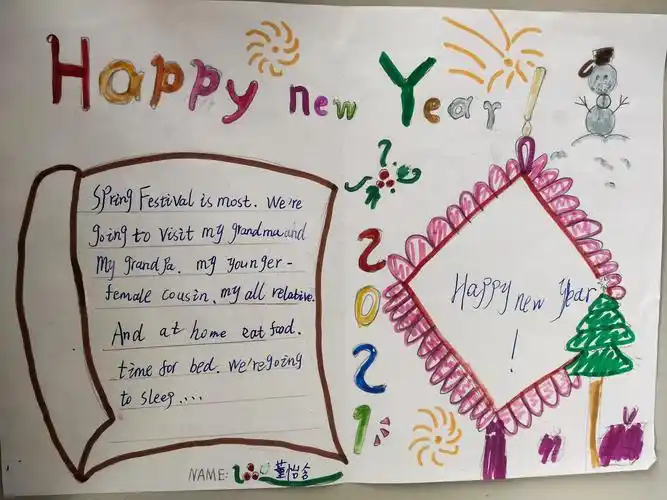 Happy new Year
Spring Festival is most. We're
going to visit my grandma and
my grandpa. my younger-
female cousin. my all relative.
And at home eat food.
time for bed. We're going
to sleep....
2021
Happy new year
!
NAME: 董怡含